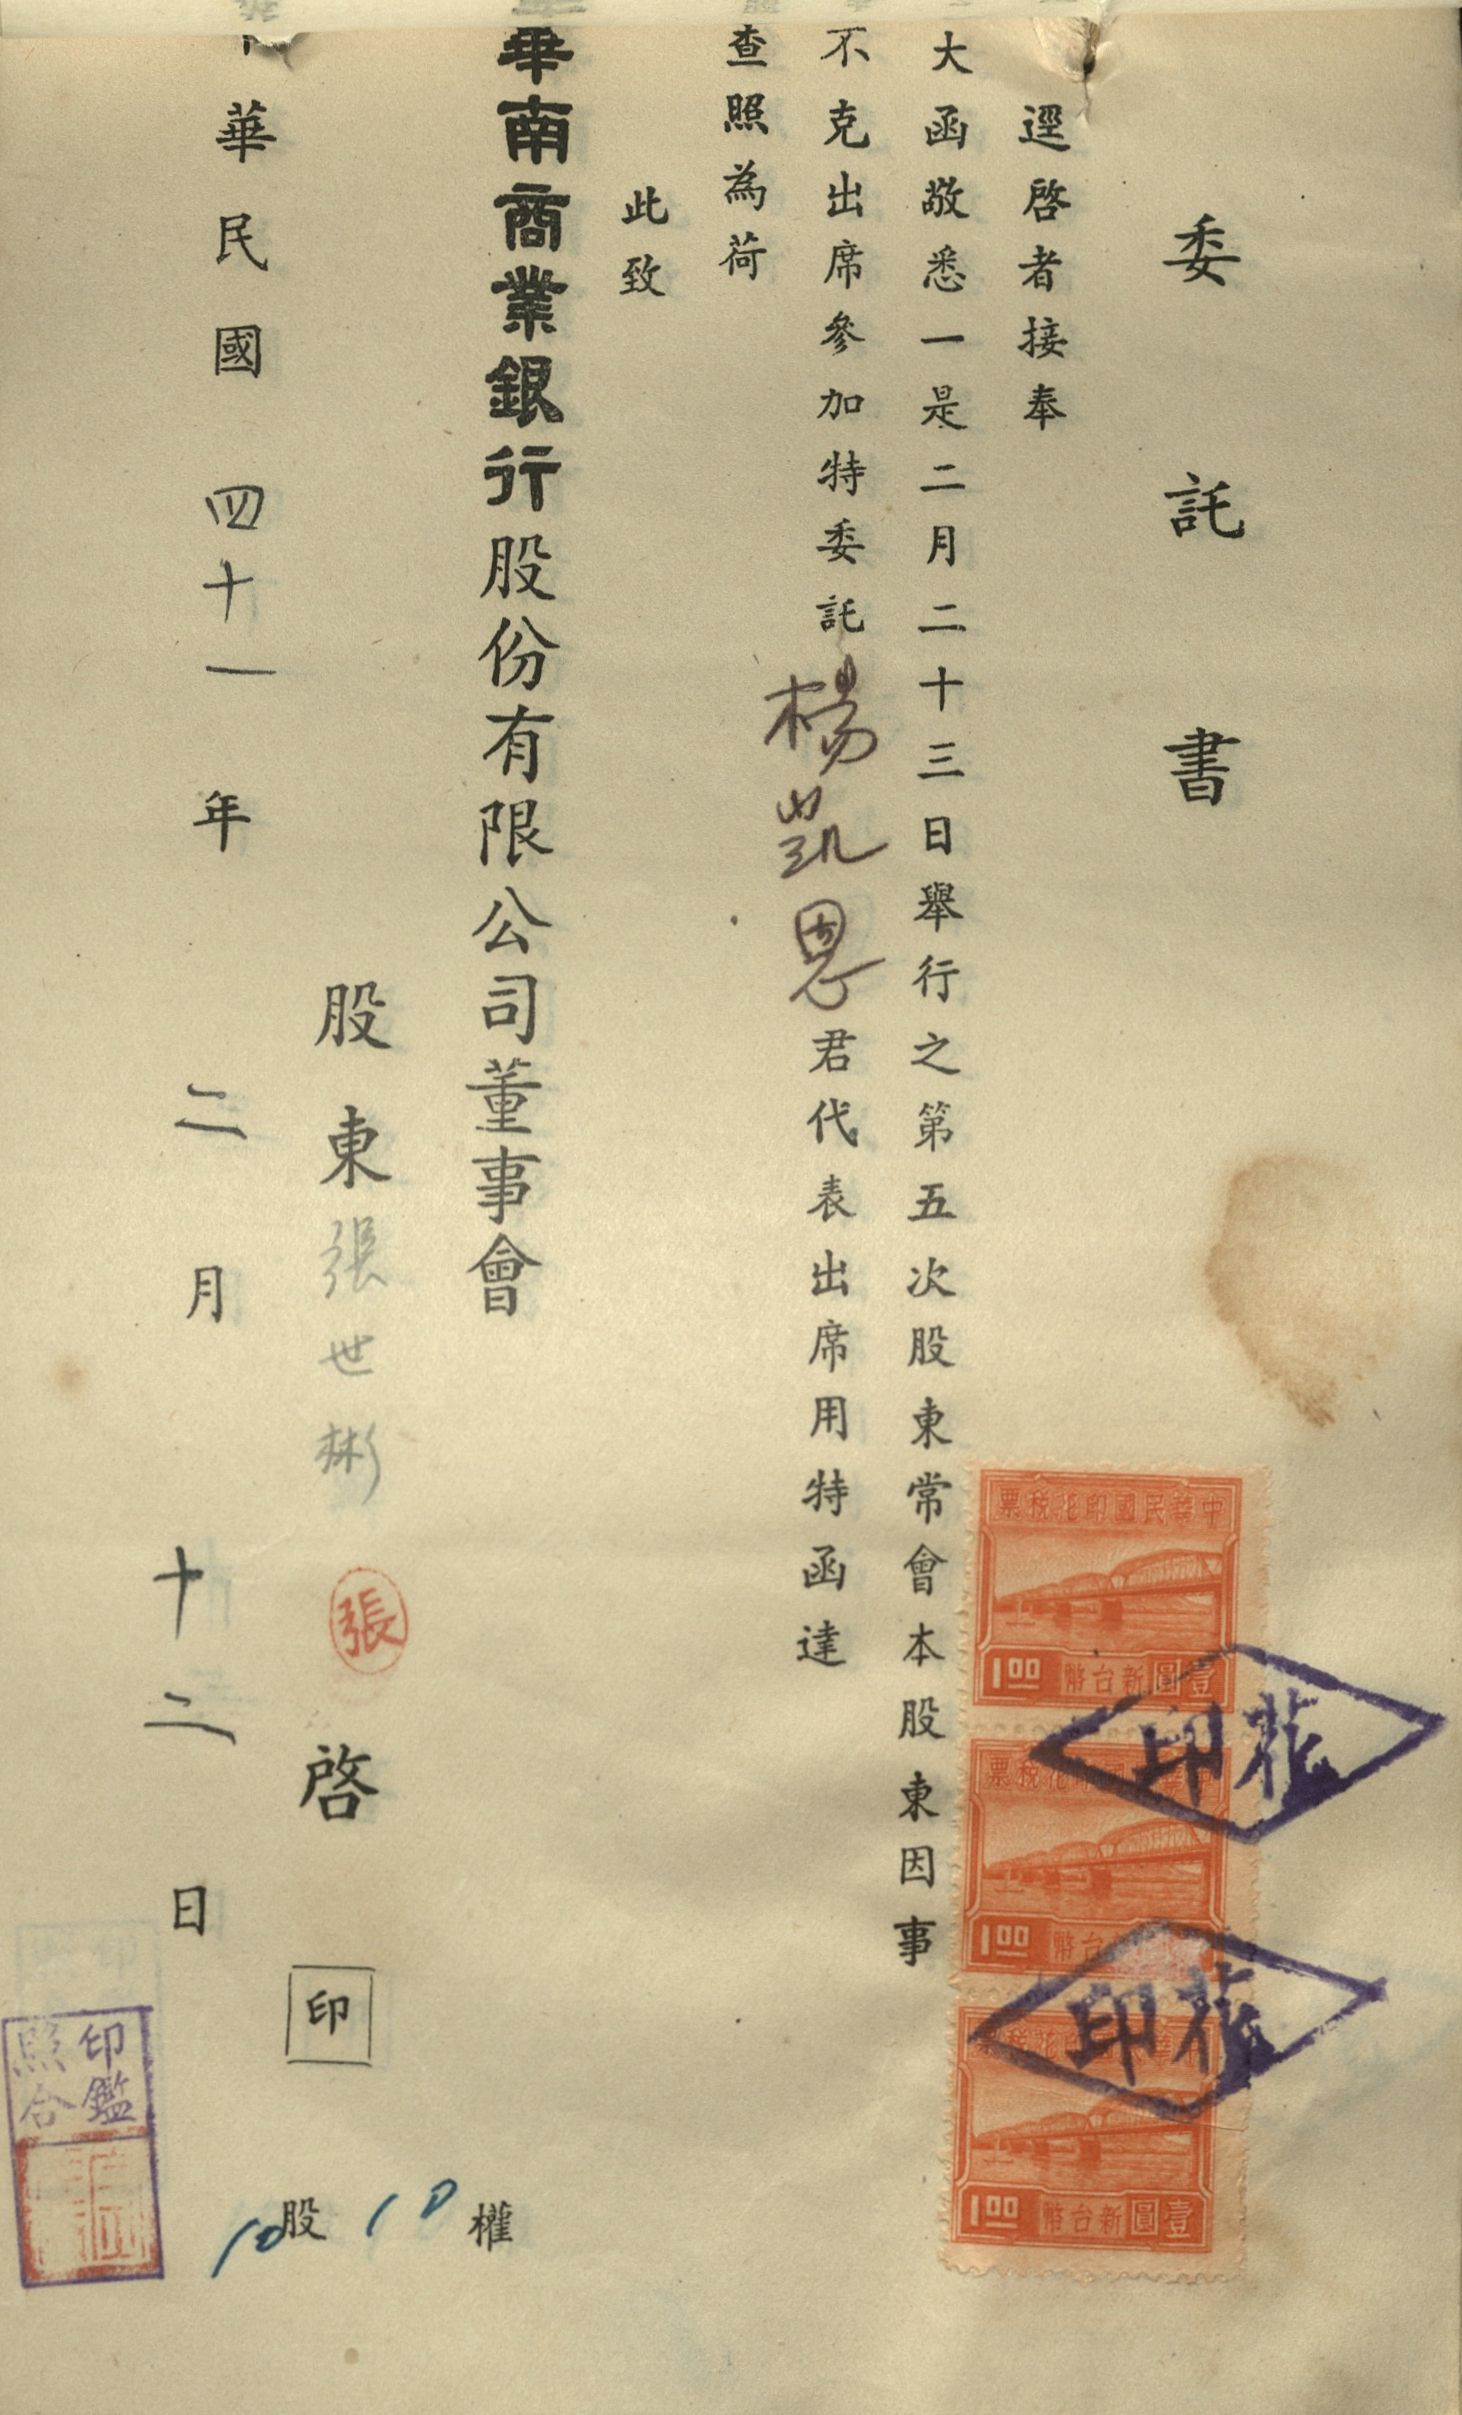 委託書
逕啓者接奉
大函敬悉一是二月二十三日舉行之第五次股東常會本股東因事
不克出席參加特委託楊凱恩君代表出席用特函達
查照為荷
此致
華南商業銀行股份有限公司董事會
股東張世彬 張 啓 印
華民國四十一年二月十二日
10股10權
印鑑
照合
中華民國印花稅票
1.00 壹圓新台幣
中華民國印花稅票
1.00 台幣
中華民國印花稅票
1.00 壹圓新台幣
印花
印花